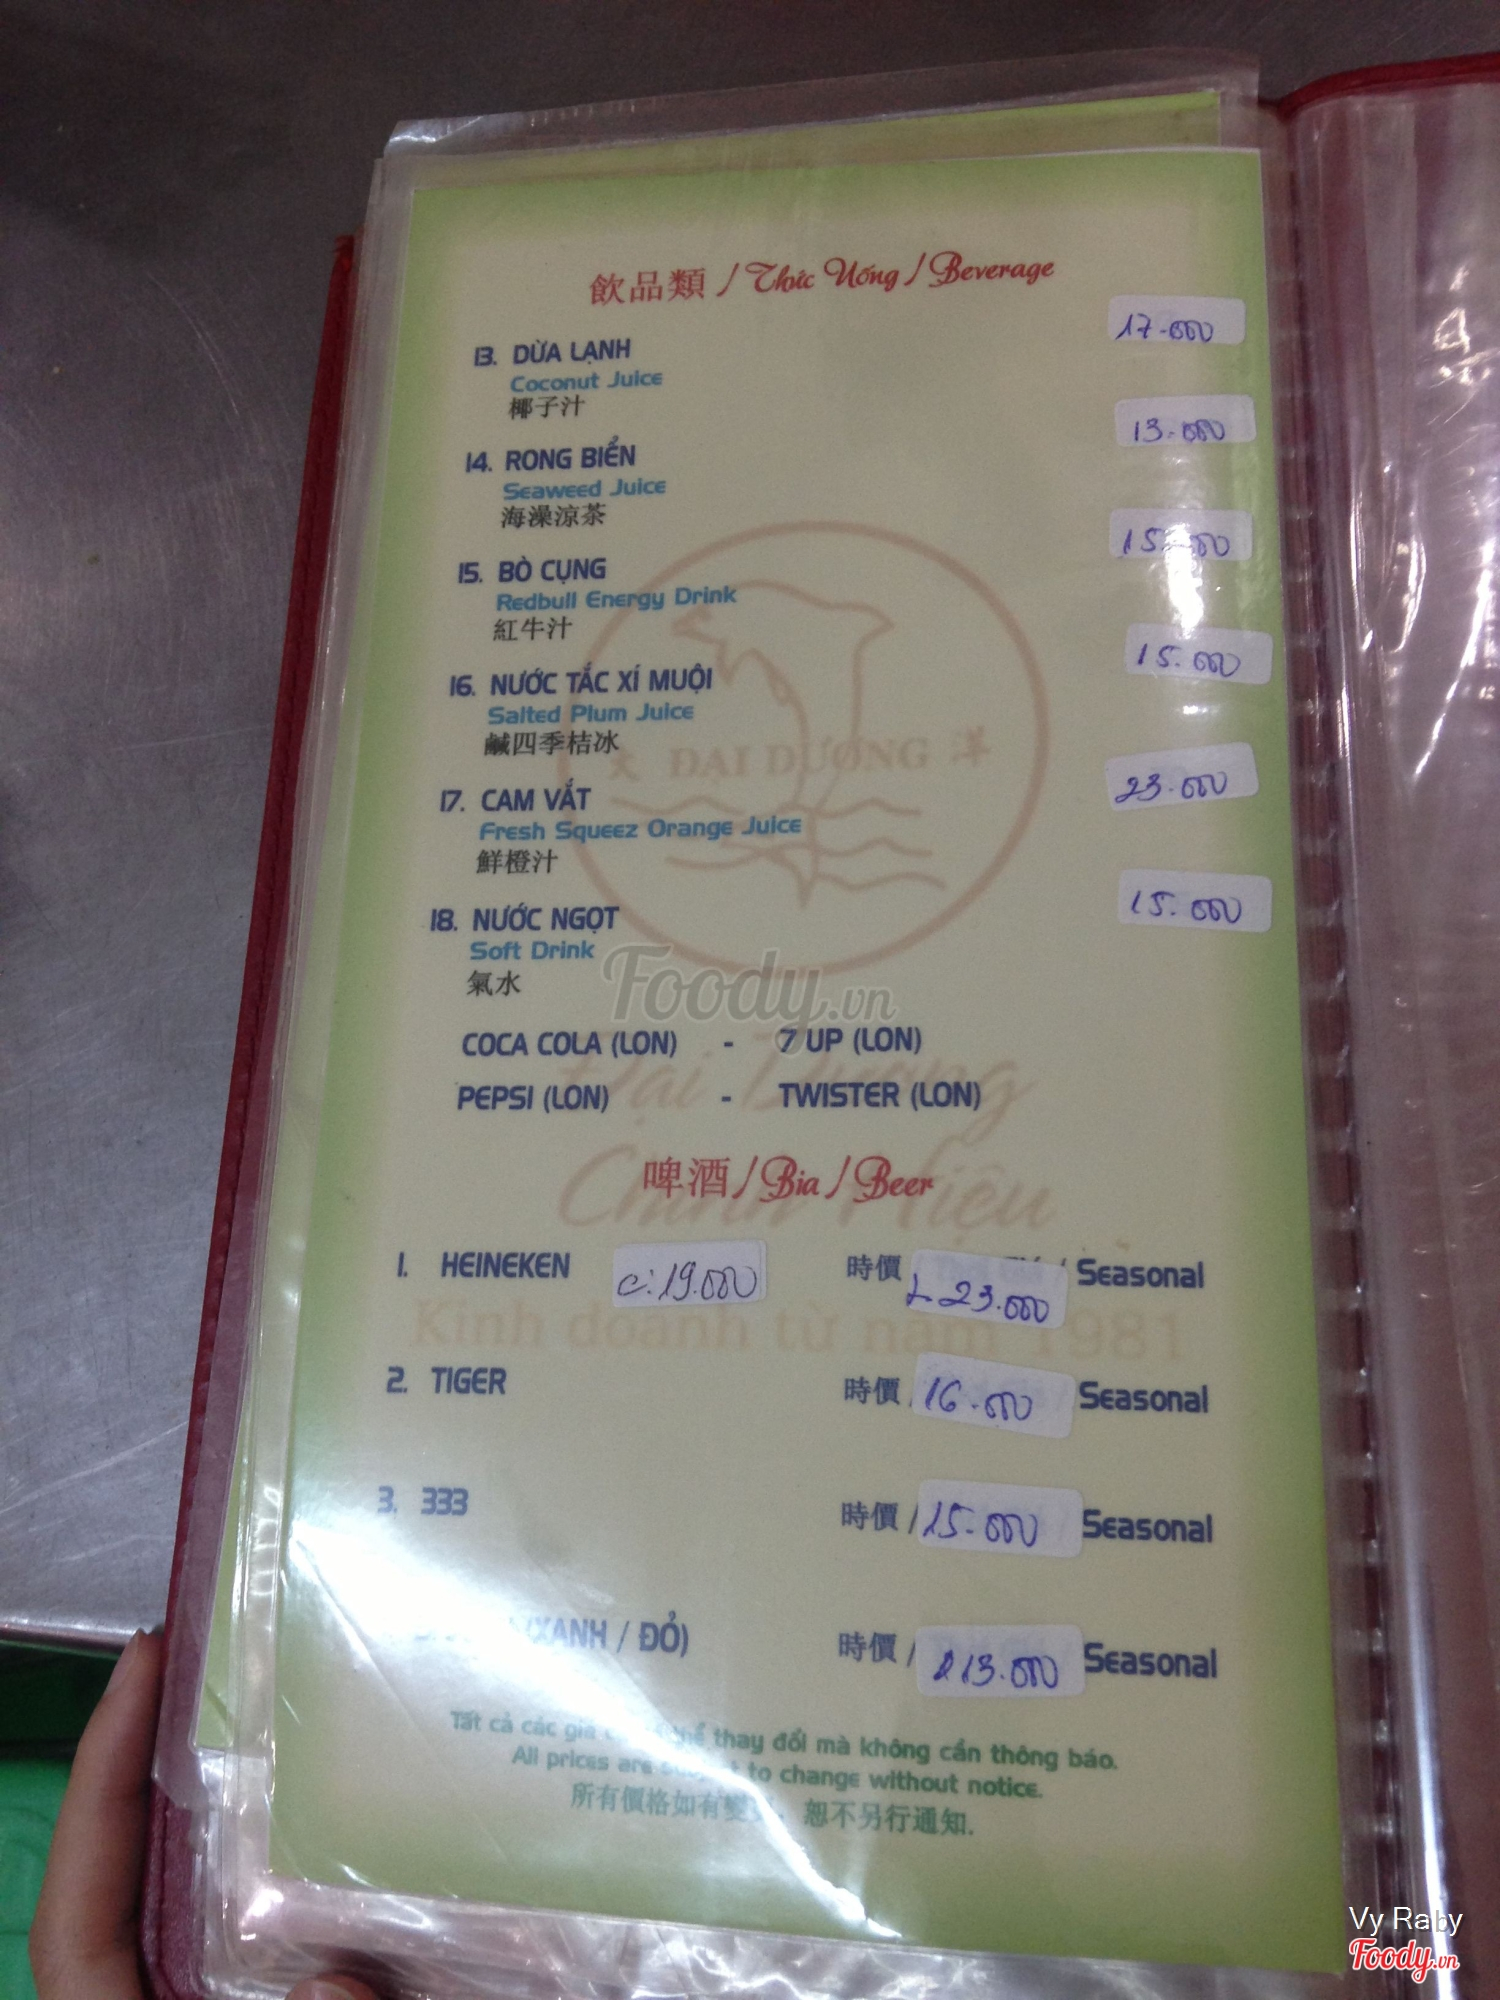 飲品類 / Thức Uống / Beverage
13. DỪA LẠNH 17.000
Coconut Juice
椰子汁
14. RONG BIỂN 13.000
Seaweed Juice
海澡涼茶
15. BÒ CỤNG 15.000
Redbull Energy Drink
紅牛汁
16. NƯỚC TẮC XÍ MUỘI 15.000
Salted Plum Juice
鹹四季桔冰
17. CAM VẮT 23.000
Fresh Squeez Orange Juice
鮮橙汁
18. NƯỚC NGỌT 15.000
Soft Drink
氣水
COCA COLA (LON) - 7 UP (LON)
PEPSI (LON) - TWISTER (LON)
ĐẠI DƯƠNG 洋
Foody.vn
Đại Dương
Chính Hiệu
Kinh doanh từ năm 1981
啤酒 / Bia / Beer
1. HEINEKEN c: 19.000 時價 L 23.000 / Seasonal
2. TIGER 時價 / 16.000 Seasonal
3. 333 時價 / 15.000 Seasonal
(XANH / ĐỎ) 時價 / 13.000 Seasonal
Tất cả các giá thể thay đổi mà không cần thông báo.
All prices are subject to change without notice.
所有價格如有變 恕不另行通知.
Vy Raby
Foody.vn